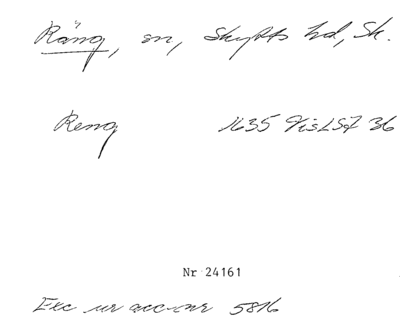 Räng, sn, Skytts hd, Sk.
Reng 1635 VisLSt 36
Nr 24161
Exc ur acc-nr 5816